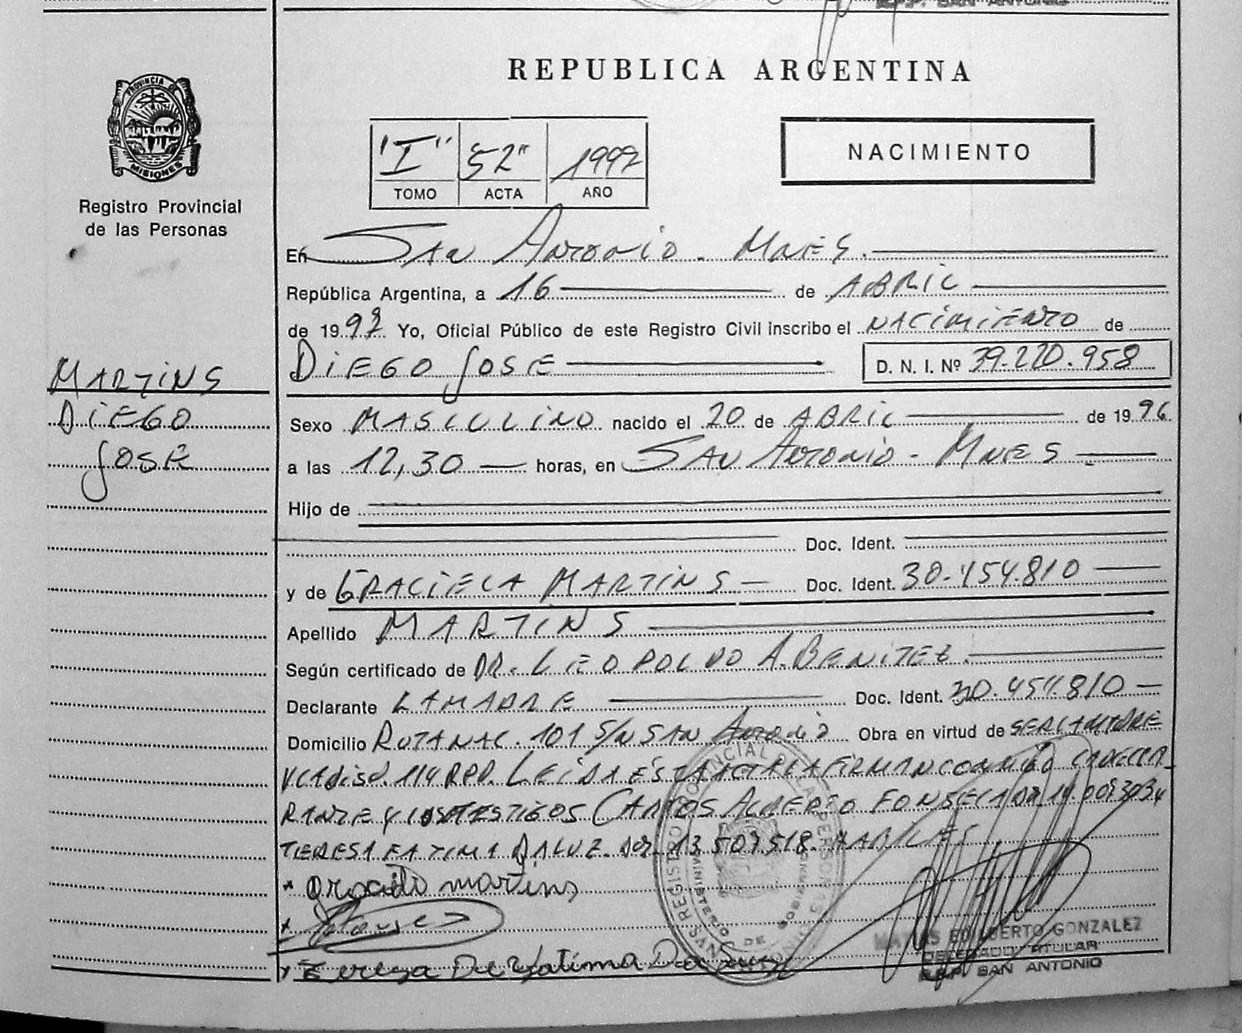 R.P.P. SAN ANTONIO
REPUBLICA ARGENTINA
PROVINCIA DE MISIONES
Registro Provincial
de las Personas
"I" 52" 1997
TOMO ACTA AÑO
NACIMIENTO
En SAN ANTONIO - MNES.
República Argentina, a 16 de ABRIL
de 1997 Yo, Oficial Público de este Registro Civil inscribo el NACIMIENTO de
DIEGO JOSE D. N. I. Nº 39.220.958
MARTINS
DIEGO
JOSE
Sexo MASCULINO nacido el 20 de ABRIL de 1996
a las 12,30 horas, en SAN ANTONIO - MNES
Hijo de
Doc. Ident.
y de GRACIELA MARTINS Doc. Ident. 30.454.810
Apellido MARTINS
Según certificado de DR. LEOPOLDO A. BENITEZ.
Declarante LA MADRE Doc. Ident. 30.454.810
Domicilio RUTA NAC. 101 S/N SAN ANTONIO Obra en virtud de SER LA MADRE
LEIDA ESTA ACTA LA FIRMAN CONMIGO LA DECLA-
RANTE Y LOS TESTIGOS CARLOS ALBERTO FONSECA
TERESA FATIMA DALUZ 13.509.518
martins
Fatima
MATIAS EDILBERTO GONZALEZ
DELEGADO TITULAR
R.P.P. SAN ANTONIO